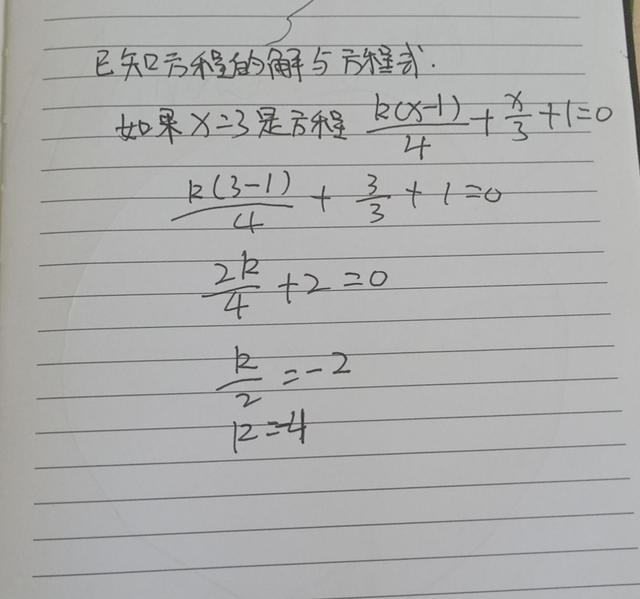 已知方程的解与方程式.
如果x=3是方程 k(x-1)/4 + x/3 + 1 = 0
k(3-1)/4 + 3/3 + 1 = 0
2k/4 + 2 = 0
k/2 = -2
k=-4